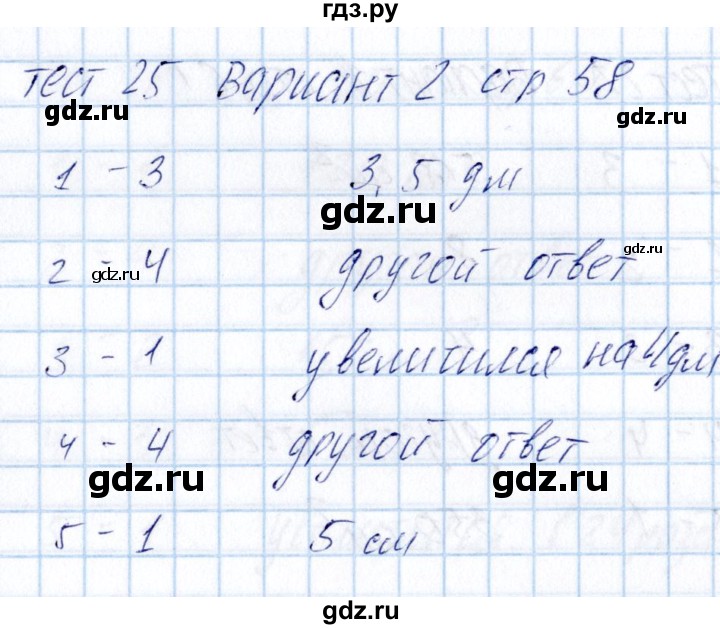 гдз.ру
тест 25 Вариант 2 стр 58
gdz.ru gdz.ru
1 - 3 3,5 дм
gdz.ru
2 - 4 другой ответ
gdz.ru gdz.ru
3 - 1 увеличился на 4дм
4 - 4 другой ответ
gdz.ru gdz.ru
5 - 1 5 см
gdz.ru